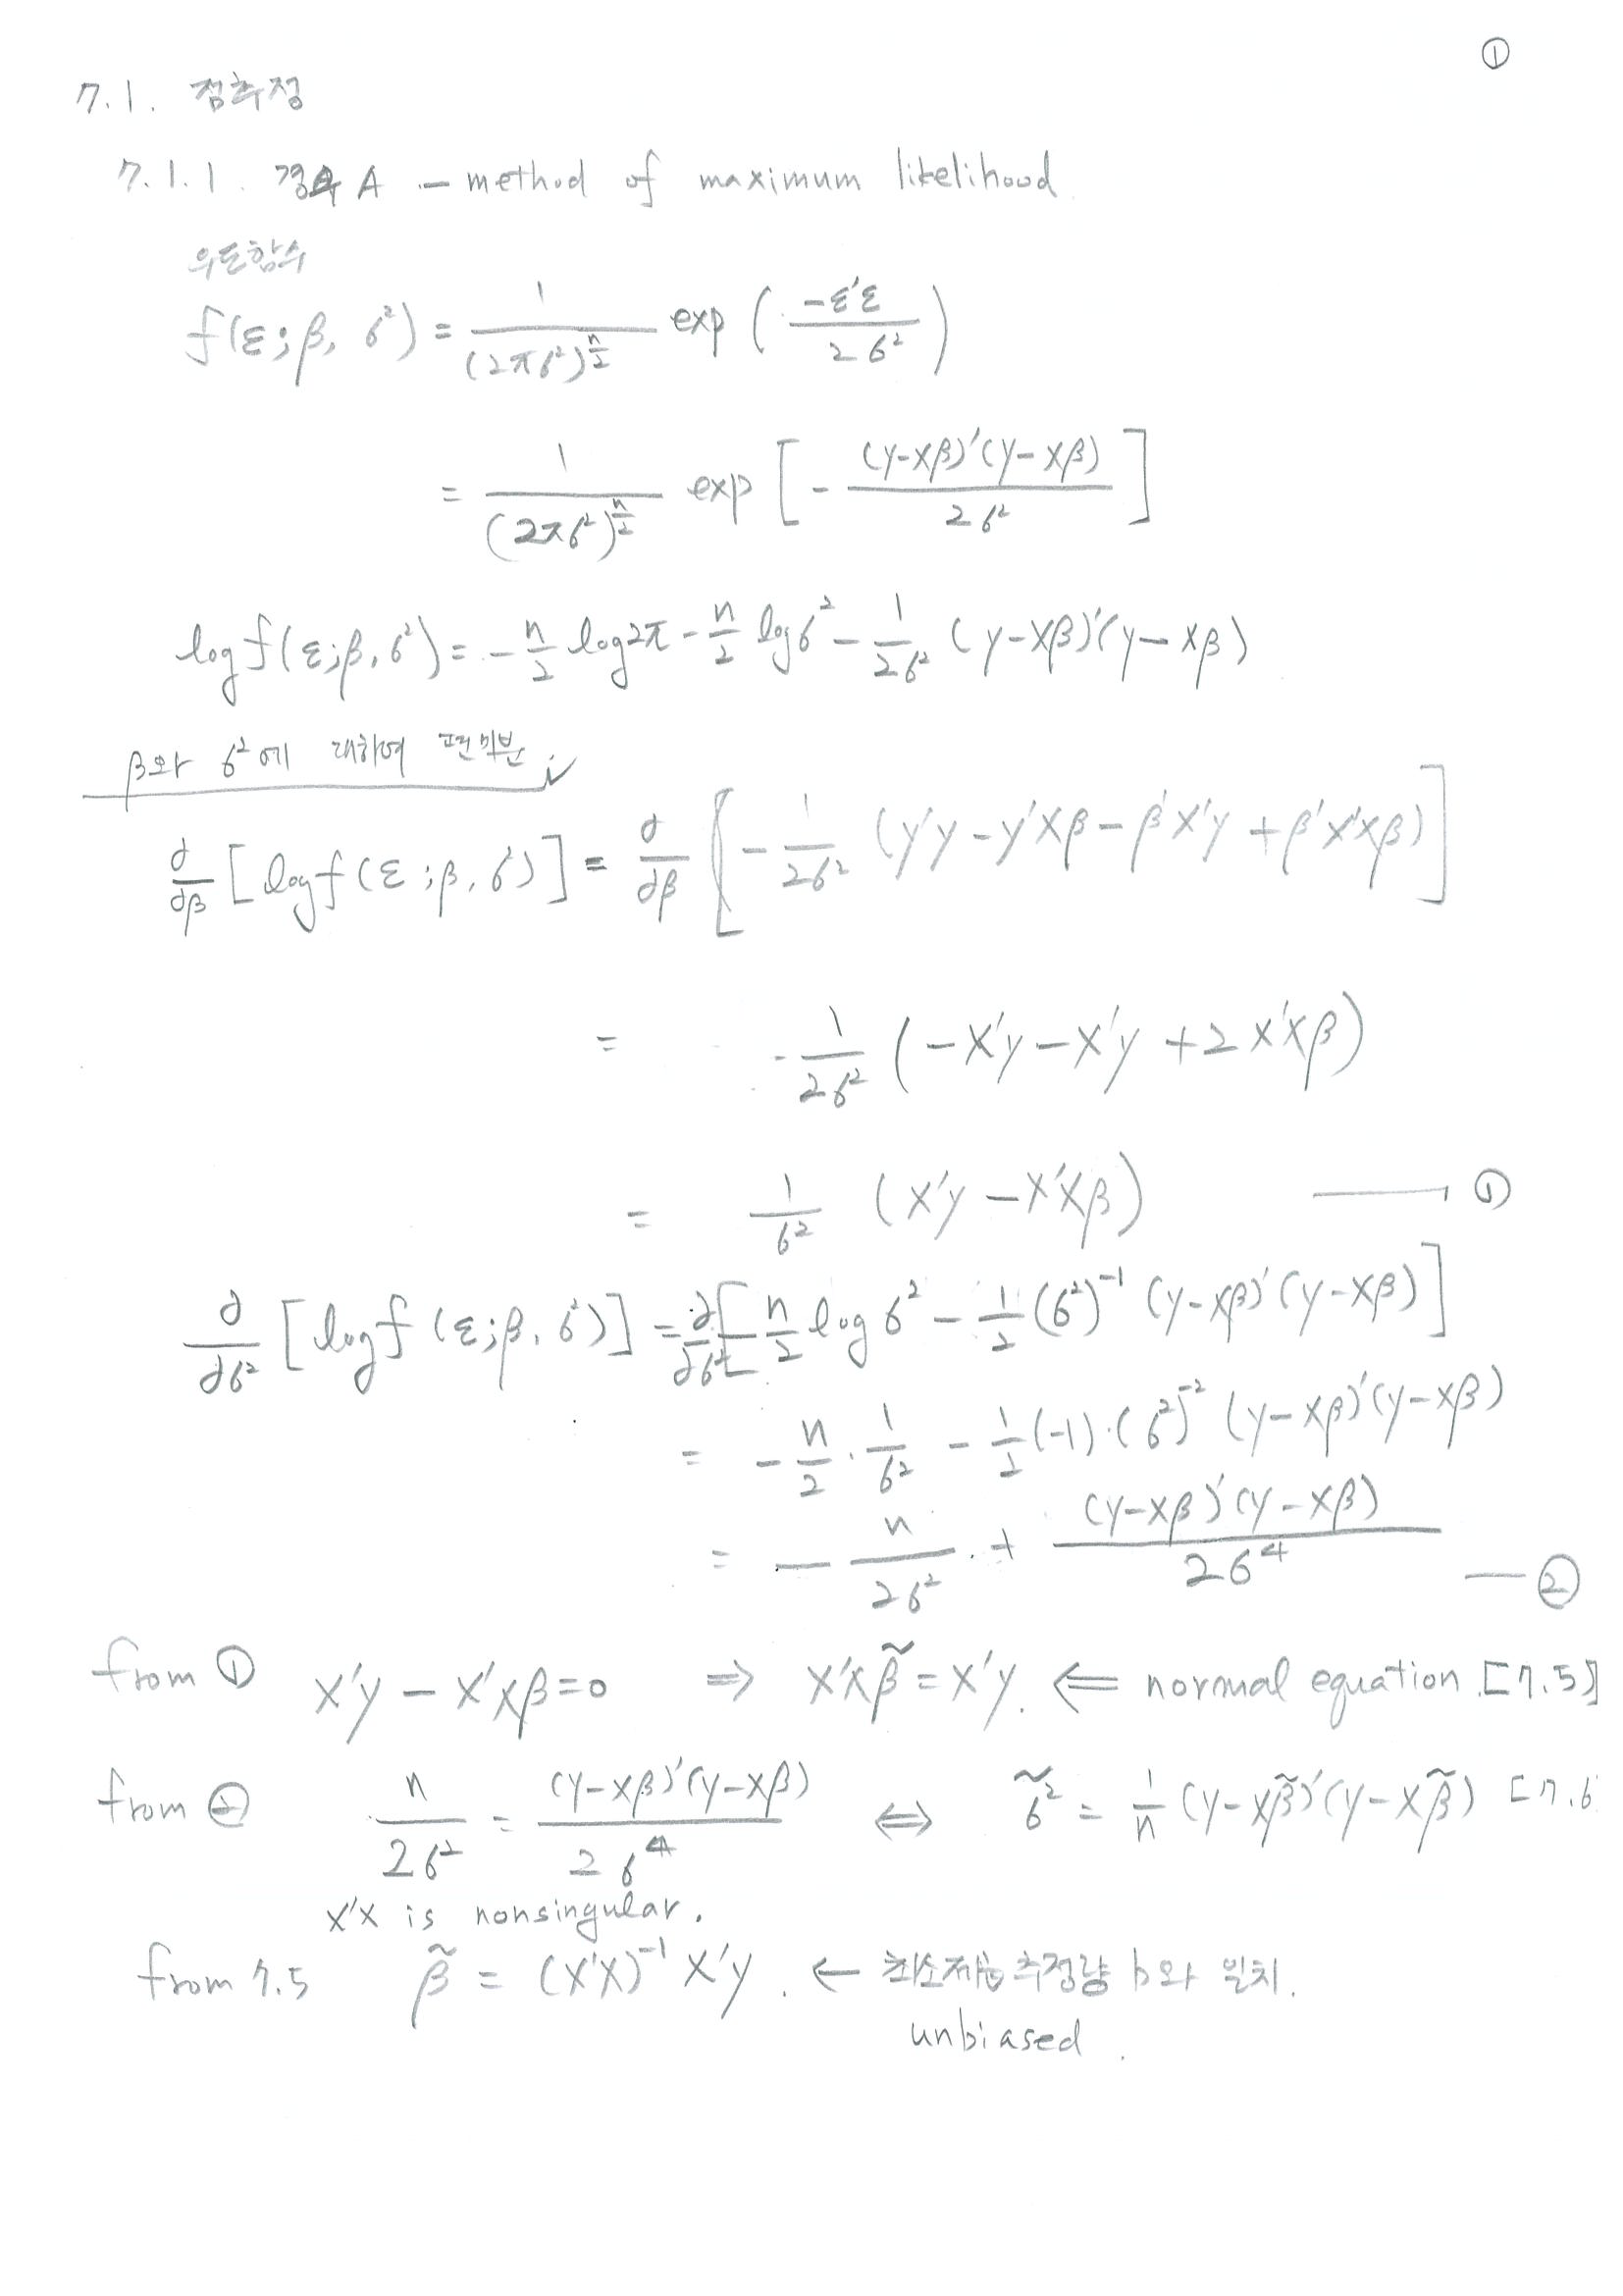 ①
7.1. 점추정
7.1.1. 경우 A - method of maximum likelihood
우도함수
f(ε;β, σ²) = 1/(2πσ²)^(n/2) exp ( -ε'ε / 2σ² )
= 1/(2πσ²)^(n/2) exp [ - (y-Xβ)'(y-Xβ) / 2σ² ]
log f(ε;β,σ²) = - n/2 log2π - n/2 log σ² - 1/2σ² (y-Xβ)'(y-Xβ)
β와 σ²에 대하여 편미분
∂/∂β [log f(ε;β,σ²)] = ∂/∂β [ - 1/2σ² (y'y - y'Xβ - β'X'y + β'X'Xβ) ]
= - 1/2σ² (-X'y - X'y + 2X'Xβ)
= 1/σ² (X'y - X'Xβ) — ①
∂/∂σ² [log f(ε;β,σ²)] = ∂/∂σ² [ - n/2 log σ² - 1/2 (σ²)⁻¹ (y-Xβ)'(y-Xβ) ]
= - n/2 · 1/σ² - 1/2 (-1)·(σ²)⁻² (y-Xβ)'(y-Xβ)
= - n/2σ² + (y-Xβ)'(y-Xβ) / 2σ⁴ — ②
from ① X'y - X'Xβ=0 ⇒ X'Xβ̃ = X'y. ⇐ normal equation [7.5]
from ② n/2σ² = (y-Xβ)'(y-Xβ) / 2σ⁴ ⇔ σ̃² = 1/n (y-Xβ̃)'(y-Xβ̃) [7.6
X'X is nonsingular.
from 7.5 β̃ = (X'X)⁻¹ X'y. ← 최소제곱 추정량 b와 일치.
unbiased.